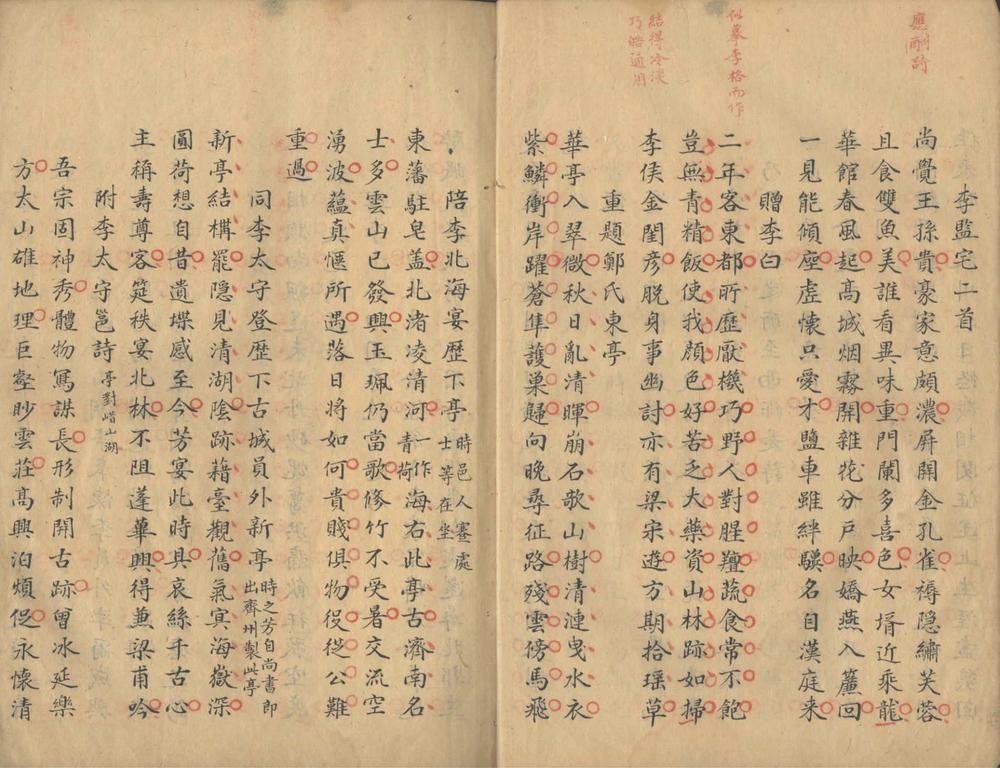 應酬詩
李監宅二首
尚覺王孫貴豪家意頗濃屏開金孔雀褥隱繡芙蓉
且食雙魚美誰看異味重門闌多喜色女壻近乘龍
華館春風起高城烟霧開雜花分戶映嬌燕入簾回
一見能傾座虛懷只愛才鹽車雖絆驥名自漢庭來
贈李白
似摹李格而作
二年客東都所歷厭機巧野人對腥羶蔬食常不飽
豈無青精飯使我顏色好苦乏大藥資山林跡如掃
李侯金閨彥脫身事幽討亦有梁宋遊方期拾瑤草
結得冷淡
巧皓通用
重題鄭氏東亭
華亭入翠微秋日亂清暉崩石欹山樹清漣曳水衣
紫鱗衝岸躍蒼隼護巢歸向晚尋征路殘雲傍馬飛
陪李北海宴歷下亭 時邑人蹇處
士等在坐
東藩駐皂蓋北渚凌清河 一作
青荷 海右此亭古濟南名
士多雲山已發興玉珮仍當歌修竹不受暑交流空
湧波蘊真愜所遇落日將如何貴賤俱物役從公難
重過
同李太守登歷下古城員外新亭 時之芳自尚書郎
出齊州製此亭
新亭結構罷隱見清湖陰跡籍臺觀舊氣冥海嶽深
圓荷想自昔遺堞感至今芳宴此時具哀絲千古心
主稱壽尊客筵秩宴北林不阻蓬蓽興得兼梁甫吟
附李太守邕詩 亭對䧿山湖
吾宗固神秀體物寫謀長形制開古跡曾冰延樂
方太山雄地理巨壑眇雲莊高興泊煩促永懷清